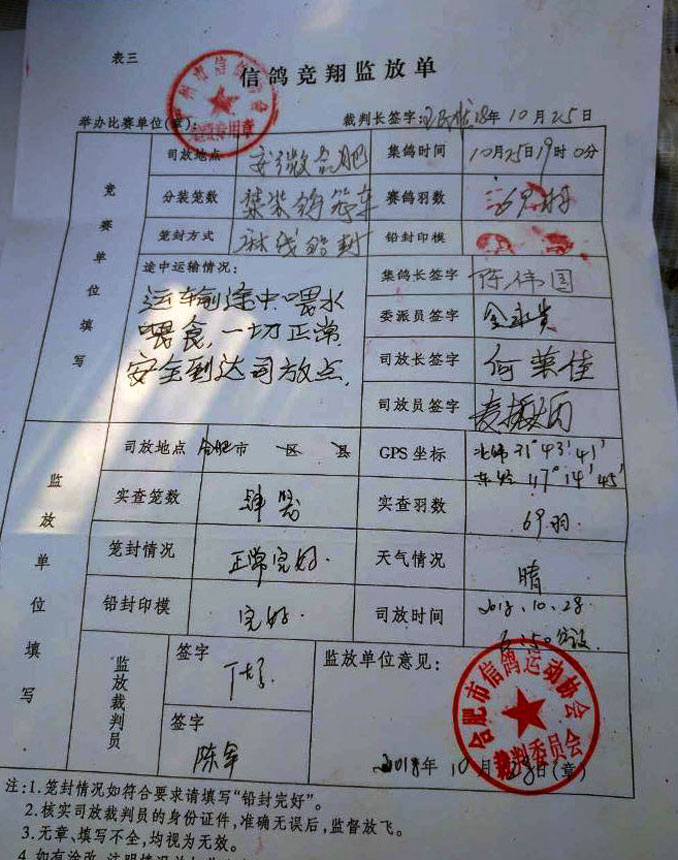 表三
信鸽竞翔监放单
举办比赛单位(章): 裁判长签字: 18年10月25日
竞赛单位填写
司放地点 安徽合肥 集鸽时间 10月25日19时0分
分装笼数 赛鸽羽数
笼封方式 麻线铅封 铅封印模
途中运输情况: 集鸽长签字 陈伟国
运输途中喂水 委派员签字
喂食,一切正常 司放长签字 何荣佳
安全到达司放点. 司放员签字
监放单位填写
司放地点 合肥市 区 县 GPS 坐标 北纬 31°43'41'
东经 117°14'45'
实查笼数 实查羽数 69羽
笼封情况 正常完好. 天气情况 晴
铅封印模 完好. 司放时间 2018.10.28.
监放裁判员 签字 监放单位意见:
签字 陈军
合肥市信鸽运动协会
裁判委员会
2018年10月28日(章)
注:1.笼封情况如符合要求请填写“铅封完好”。
2.核实司放裁判员的身份证件,准确无误后,监督放飞。
3.无章、填写不全,均视为无效。